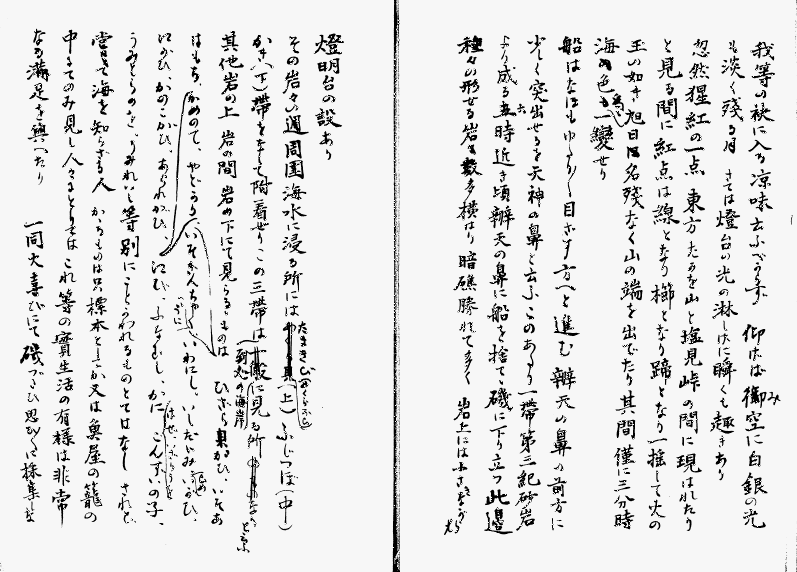 我等の袂に入る凉味云ふべからず 仰げば御空に白銀の光
も淡く殘る月 さては燈台の光の淋しげに瞬くも趣きあり
忽然猩紅の一点 東方たる山と塩見峠の間に現はれたり
と見る間に紅点は線となり櫛となり蹄となり一揺して火の
玉の如き旭日は名殘なく山の端を出でたり 其間僅に三分時
海の色も為に一變せり
船はなほもゆたかに目ざす方へと進む 辨天の鼻の前方に
少く突出せるを天神の鼻と云ふ このあたり一帶第三紀砂岩
より成る 五時近き頃辨天の鼻に船を捨て磯に下り立つ 此邊
種々の形せる岩數多横はり 暗礁勝れて多く 岩上には小さきながら
燈明台の設あり
その岩々の週周圍海水に浸る所には (上) ふじつぼ(中)
かき(下) 帶をなして附着せりこの三帶は 到処の海岸に見る所
其他岩の上 岩の間 岩の下にて見らるゝものは ひざら貝かひ、いそあ
はもち、かめのて、やどかり、いそぎんちゃく、いわにし、いしだたみ
にかひ、かのこかひ、あられかひ、にな、ふなむし、かに ごんずいの子、
うみとらのを、うみれいし等 別にことかわれるものとてはなし されど
嘗て海を知らざる人 かゝるものは只標本としてか又は魚屋の籠の
中にてのみ見し人々にとりては これ等の實生活の有様は非常
なる滿足を與へたり 一同大喜びにて磯づたひ思ひに採集しき